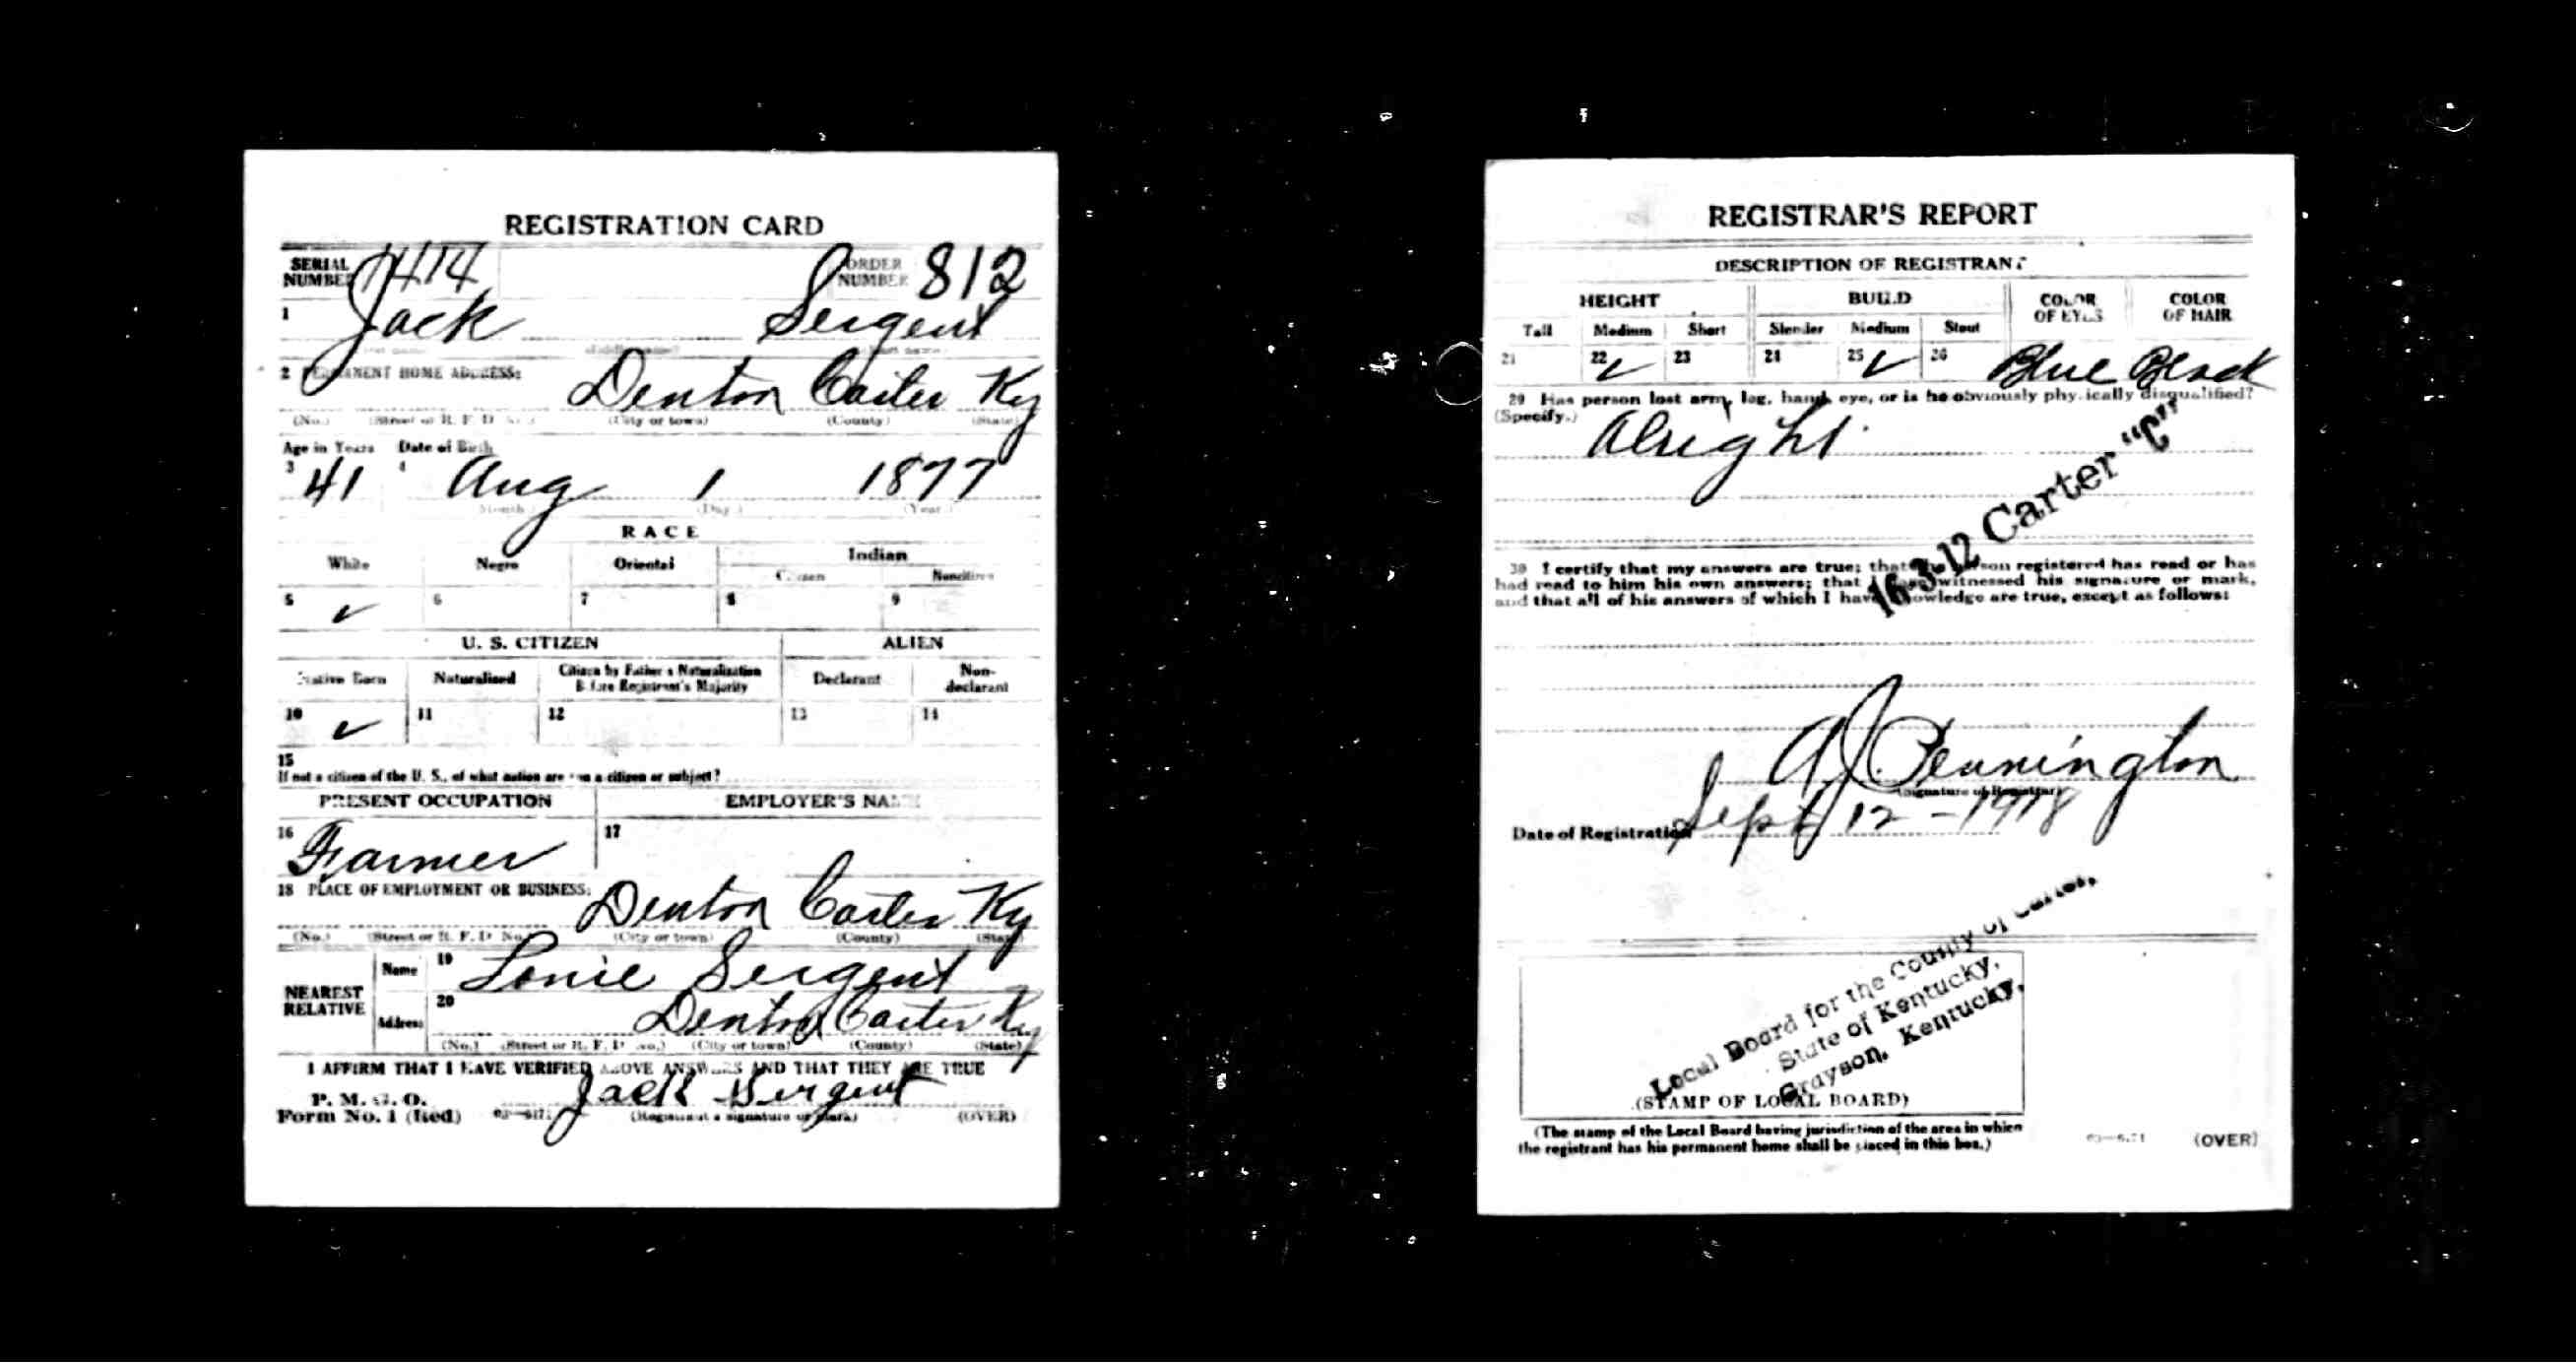 REGISTRATION CARD
SERIAL NUMBER 1414 ORDER NUMBER 812
1 Jack Sergent
2 PERMANENT HOME ADDRESS: Denton Carter Ky
(No.) (Street or R. F. D. No.) (City or town) (County) (State)
Age in Years Date of Birth
3 41 4 Aug 1 1877
(Month.) (Day.) (Year.)
RACE
White Negro Oriental Indian
Citizen Noncitizen
5 ✓ 6 7 8 9
U. S. CITIZEN ALIEN
Native Born Naturalized Citizen by Father's Naturalization Before Registrant's Majority Declarant Non-declarant
10 ✓ 11 12 13 14
15
If not a citizen of the U. S., of what nation are you a citizen or subject?
PRESENT OCCUPATION EMPLOYER'S NAME
16 Farmer 17
18 PLACE OF EMPLOYMENT OR BUSINESS:
Denton Carter Ky
(No.) (Street or R. F. D. No.) (City or town) (County) (State)
NEAREST RELATIVE Name 19 Lonie Sergent
Address 20 Denton Carter Ky
(No.) (Street or R. F. D. No.) (City or town) (County) (State)
I AFFIRM THAT I HAVE VERIFIED ABOVE ANSWERS AND THAT THEY ARE TRUE
P. M. G. O.
Form No. 1 (Red) Jack Sergent
(Registrant's signature or mark) (OVER)
REGISTRAR'S REPORT
DESCRIPTION OF REGISTRANT
HEIGHT BUILD COLOR OF EYES COLOR OF HAIR
Tall Medium Short Slender Medium Stout
21 22 ✓ 23 24 25 ✓ 26 Blue Black
29 Has person lost arm, leg, hand, eye, or is he obviously physically disqualified?
(Specify.) Alright
16-3-12 Carter "C"
30 I certify that my answers are true; that the person registered has read or has
had read to him his own answers; that I have witnessed his signature or mark,
and that all of his answers of which I have knowledge are true, except as follows:
A J Pennington
(Signature of Registrar)
Date of Registration Sept 12 - 1918
Local Board for the County of Carter,
State of Kentucky,
Grayson, Kentucky,
(STAMP OF LOCAL BOARD)
(The stamp of the Local Board having jurisdiction of the area in which
the registrant has his permanent home shall be placed in this box.)
(OVER)